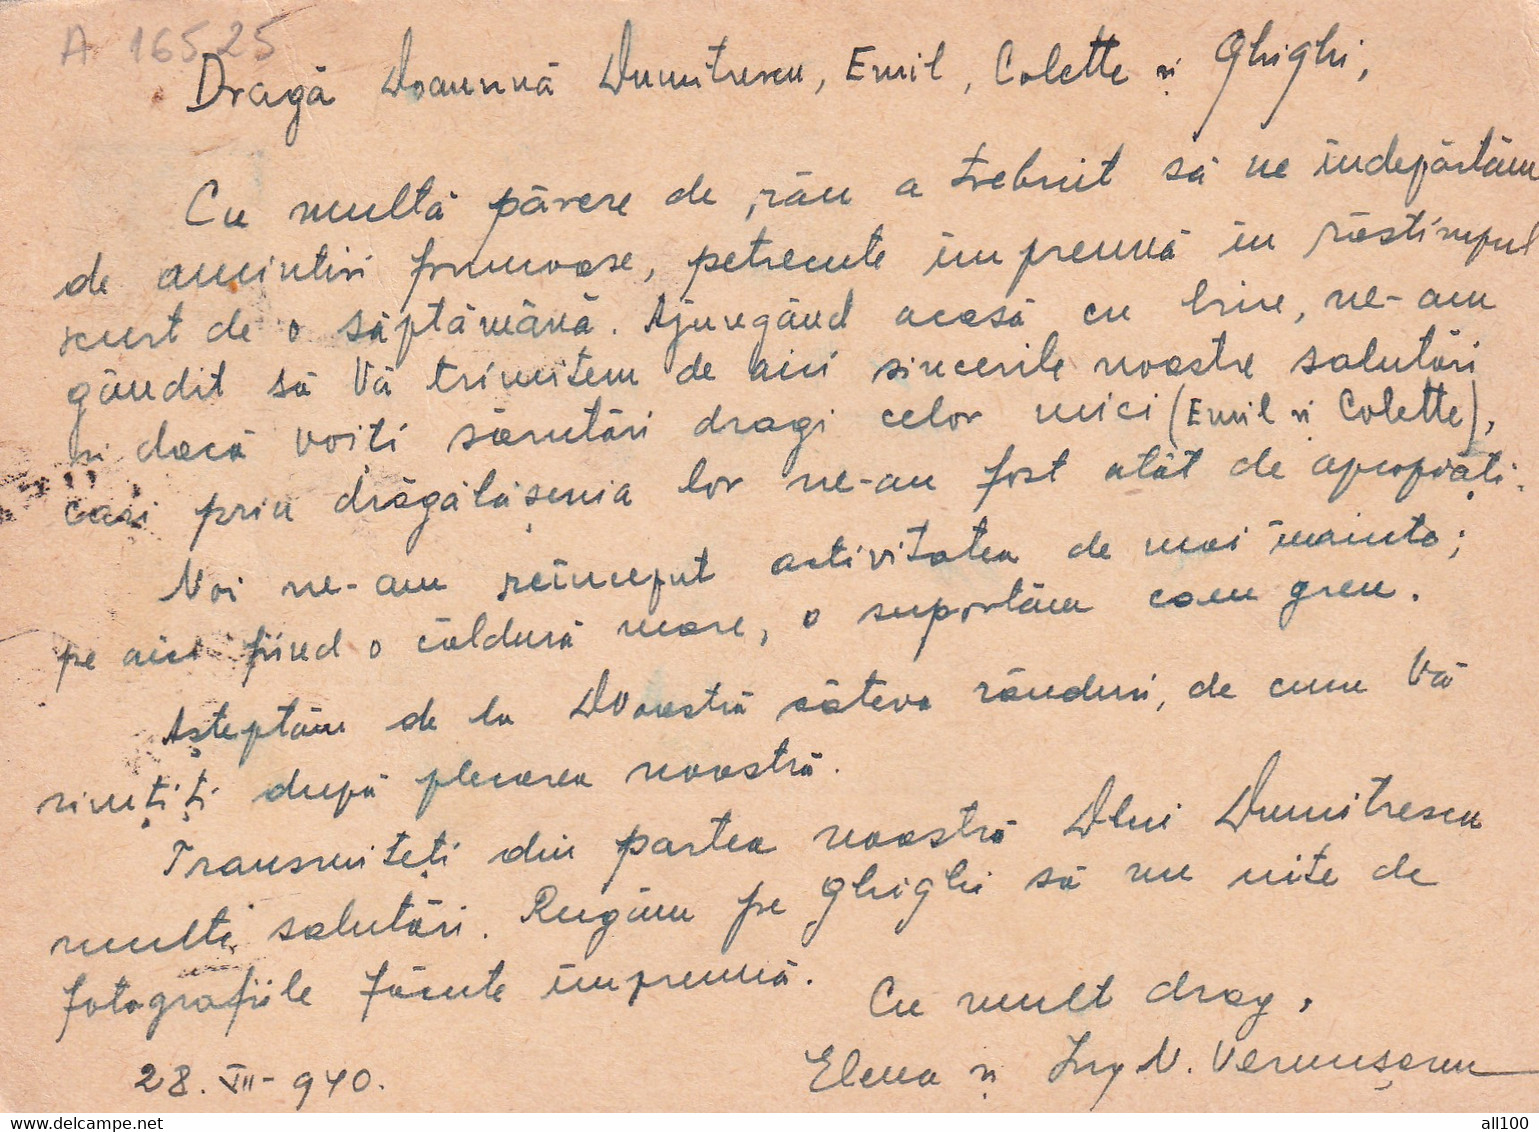 A 16525
Dragă Doamnă Dumitrescu, Emil, Colette și Ghighi,
Cu multă părere de rău a trebuit să ne îndepărtăm
de amintiri frumoase, petrecute împreună în răstimpul
scurt de o săptămână. Ajungând acasă cu bine, ne-am
gândit să Vă trimitem de aici sincerile noastre salutări
și dacă voiti sărutări dragi celor mici (Emil și Colette),
cari prin drăgălășenia lor ne-au fost atât de apropiați.
Noi ne-am reînceput activitatea de mai înainte;
pe aici fiind o căldură mare, o suportăm cam greu.
Așteptăm de la Dvoastră câteva rânduri, de cum Vă
simțiți după plecarea noastră.
Transmiteți din partea noastră Dlui Dumitrescu
multe salutări. Rugăm pe Ghighi să nu uite de
fotografiile făcute împreună.
Cu mult drag,
Elena și Ing N.
28. VII-940.
delcampe.net
all100